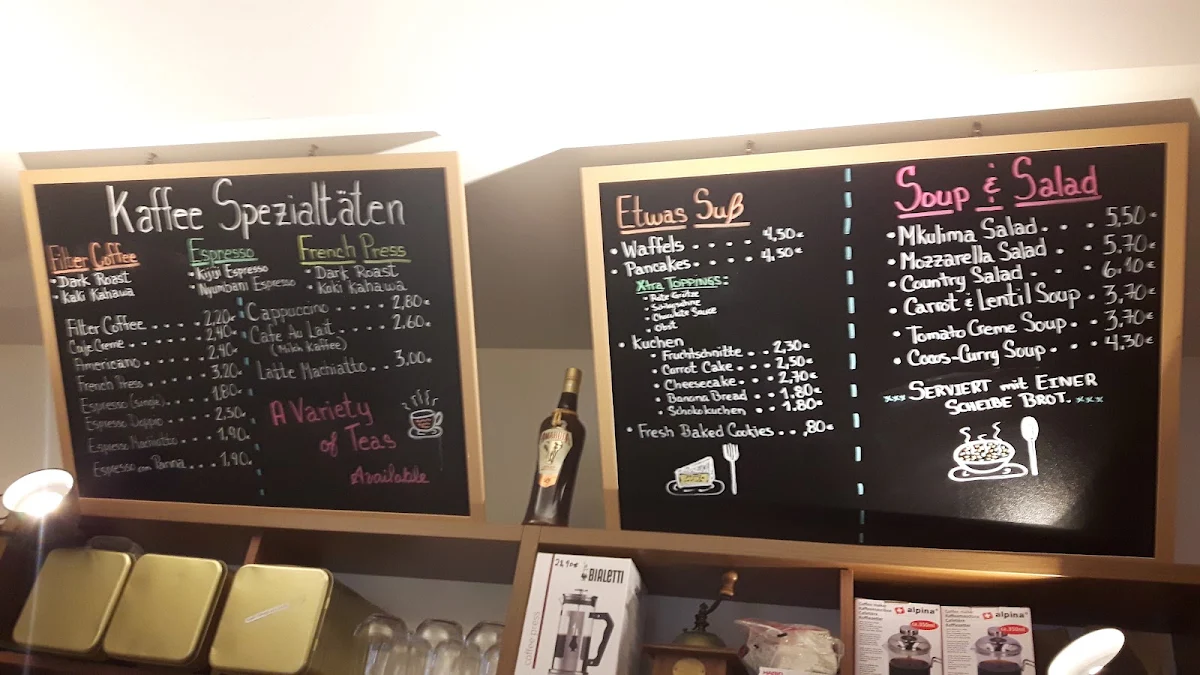 Kaffee Spezialtäten
Filter Coffee
• Dark Roast
• Kaki Kahawa
Espresso
• Kijiji Espresso
• Nyumbani Espresso
French Press
• Dark Roast
• Kaki Kahawa
Filter Coffee . . . . 2,20€
Caje Creme . . . . 2,40€
Americano . . . . 2,40€
French Press . . . . 3,20€
Espresso (single) . . . 1,80€
Espresso Doppio . . . 2,50€
Espresso Machiatto . . . 1,90€
Espresso con Panna . . . 1,90€
Cappuccino . . . . 2,80€
Cafe Au Lait . . . . 2,60€
(Milch Kaffee)
Latte Machiatto . . 3,00€
A Variety
of Teas
Available
Etwas Suß
• Waffels . . . . 4,50€
• Pancakes . . . . 4,50€
Xtra Toppings:
• Rote Grütze
• Schlagsahne
• Chocolate Sauce
• Obst
• Kuchen
• Fruchtschnitte . . 2,30€
• Carrot Cake . . . 2,50€
• Cheesecake . . . 2,70€
• Banana Bread . . 1,80€
• Schokokuchen . . 1,80€
• Fresh Baked Cookies . . ,80€
Soup & Salad
• Mkulima Salad . . . 5,50€
• Mozzarella Salad . . 5,70€
• Country Salad . . . 6,10€
• Carrot & Lentil Soup . 3,70€
• Tomato Creme Soup . . 3,70€
• Cocos-Curry Soup . . . 4,30€
xxx Serviert mit Einer
Scheibe Brot. xxx
AMARULA
BIALETTI
coffee press
alpina
ca.350ml
alpina
ca.350ml